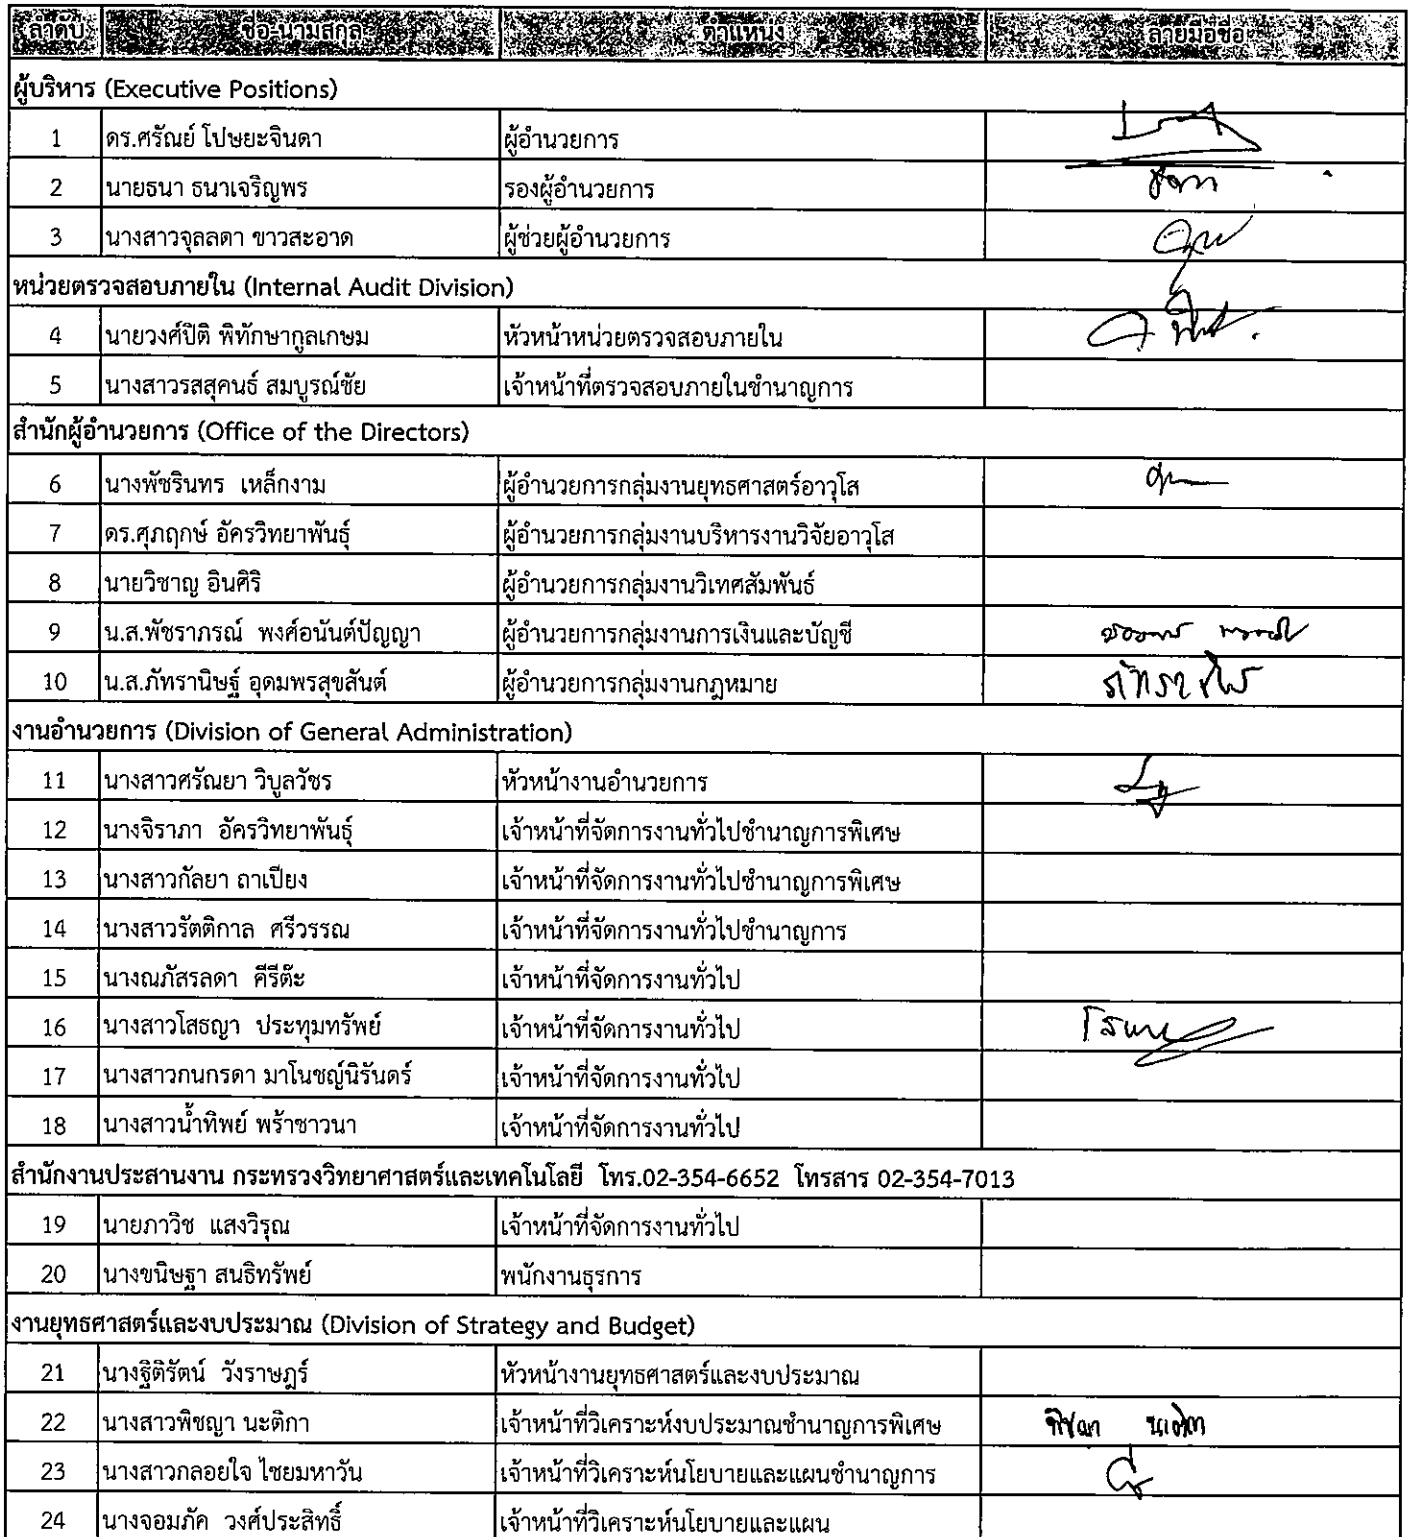 ลำดับ ชื่อ-นามสกุล ตำแหน่ง ลายมือชื่อ
ผู้บริหาร (Executive Positions)
1 ดร.ศรัณย์ โปษยะจินดา ผู้อำนวยการ
2 นายธนา ธนาเจริญพร รองผู้อำนวยการ
3 นางสาวจุลลดา ขาวสะอาด ผู้ช่วยผู้อำนวยการ
หน่วยตรวจสอบภายใน (Internal Audit Division)
4 นายวงศ์ปิติ พิทักษากูลเกษม หัวหน้าหน่วยตรวจสอบภายใน
5 นางสาวรสสุคนธ์ สมบูรณ์ชัย เจ้าหน้าที่ตรวจสอบภายในชำนาญการ
สำนักผู้อำนวยการ (Office of the Directors)
6 นางพัชรินทร เหล็กงาม ผู้อำนวยการกลุ่มงานยุทธศาสตร์อาวุโส
7 ดร.ศุภฤกษ์ อัครวิทยาพันธุ์ ผู้อำนวยการกลุ่มงานบริหารงานวิจัยอาวุโส
8 นายวิชาญ อินศิริ ผู้อำนวยการกลุ่มงานวิเทศสัมพันธ์
9 น.ส.พัชราภรณ์ พงศ์อนันต์ปัญญา ผู้อำนวยการกลุ่มงานการเงินและบัญชี
10 น.ส.ภัทรานิษฐ์ อุดมพรสุขสันต์ ผู้อำนวยการกลุ่มงานกฎหมาย
งานอำนวยการ (Division of General Administration)
11 นางสาวศรัณยา วิบูลวัชร หัวหน้างานอำนวยการ
12 นางจิราภา อัครวิทยาพันธุ์ เจ้าหน้าที่จัดการงานทั่วไปชำนาญการพิเศษ
13 นางสาวกัลยา ถาเปียง เจ้าหน้าที่จัดการงานทั่วไปชำนาญการพิเศษ
14 นางสาวรัตติกาล ศรีวรรณ เจ้าหน้าที่จัดการงานทั่วไปชำนาญการ
15 นางณภัสรลดา คีรีต๊ะ เจ้าหน้าที่จัดการงานทั่วไป
16 นางสาวโสธญา ประทุมทรัพย์ เจ้าหน้าที่จัดการงานทั่วไป
17 นางสาวกนกรดา มาโนชญ์นิรันดร์ เจ้าหน้าที่จัดการงานทั่วไป
18 นางสาวน้ำทิพย์ พร้าชาวนา เจ้าหน้าที่จัดการงานทั่วไป
สำนักงานประสานงาน กระทรวงวิทยาศาสตร์และเทคโนโลยี โทร.02-354-6652 โทรสาร 02-354-7013
19 นายภาวิช แสงวิรุณ เจ้าหน้าที่จัดการงานทั่วไป
20 นางขนิษฐา สนธิทรัพย์ พนักงานธุรการ
งานยุทธศาสตร์และงบประมาณ (Division of Strategy and Budget)
21 นางฐิติรัตน์ วังราษฎร์ หัวหน้างานยุทธศาสตร์และงบประมาณ
22 นางสาวพิชญา นะติกา เจ้าหน้าที่วิเคราะห์งบประมาณชำนาญการพิเศษ พิชญา นะติกา
23 นางสาวกลอยใจ ไชยมหาวัน เจ้าหน้าที่วิเคราะห์นโยบายและแผนชำนาญการ
24 นางจอมภัค วงศ์ประสิทธิ์ เจ้าหน้าที่วิเคราะห์นโยบายและแผน